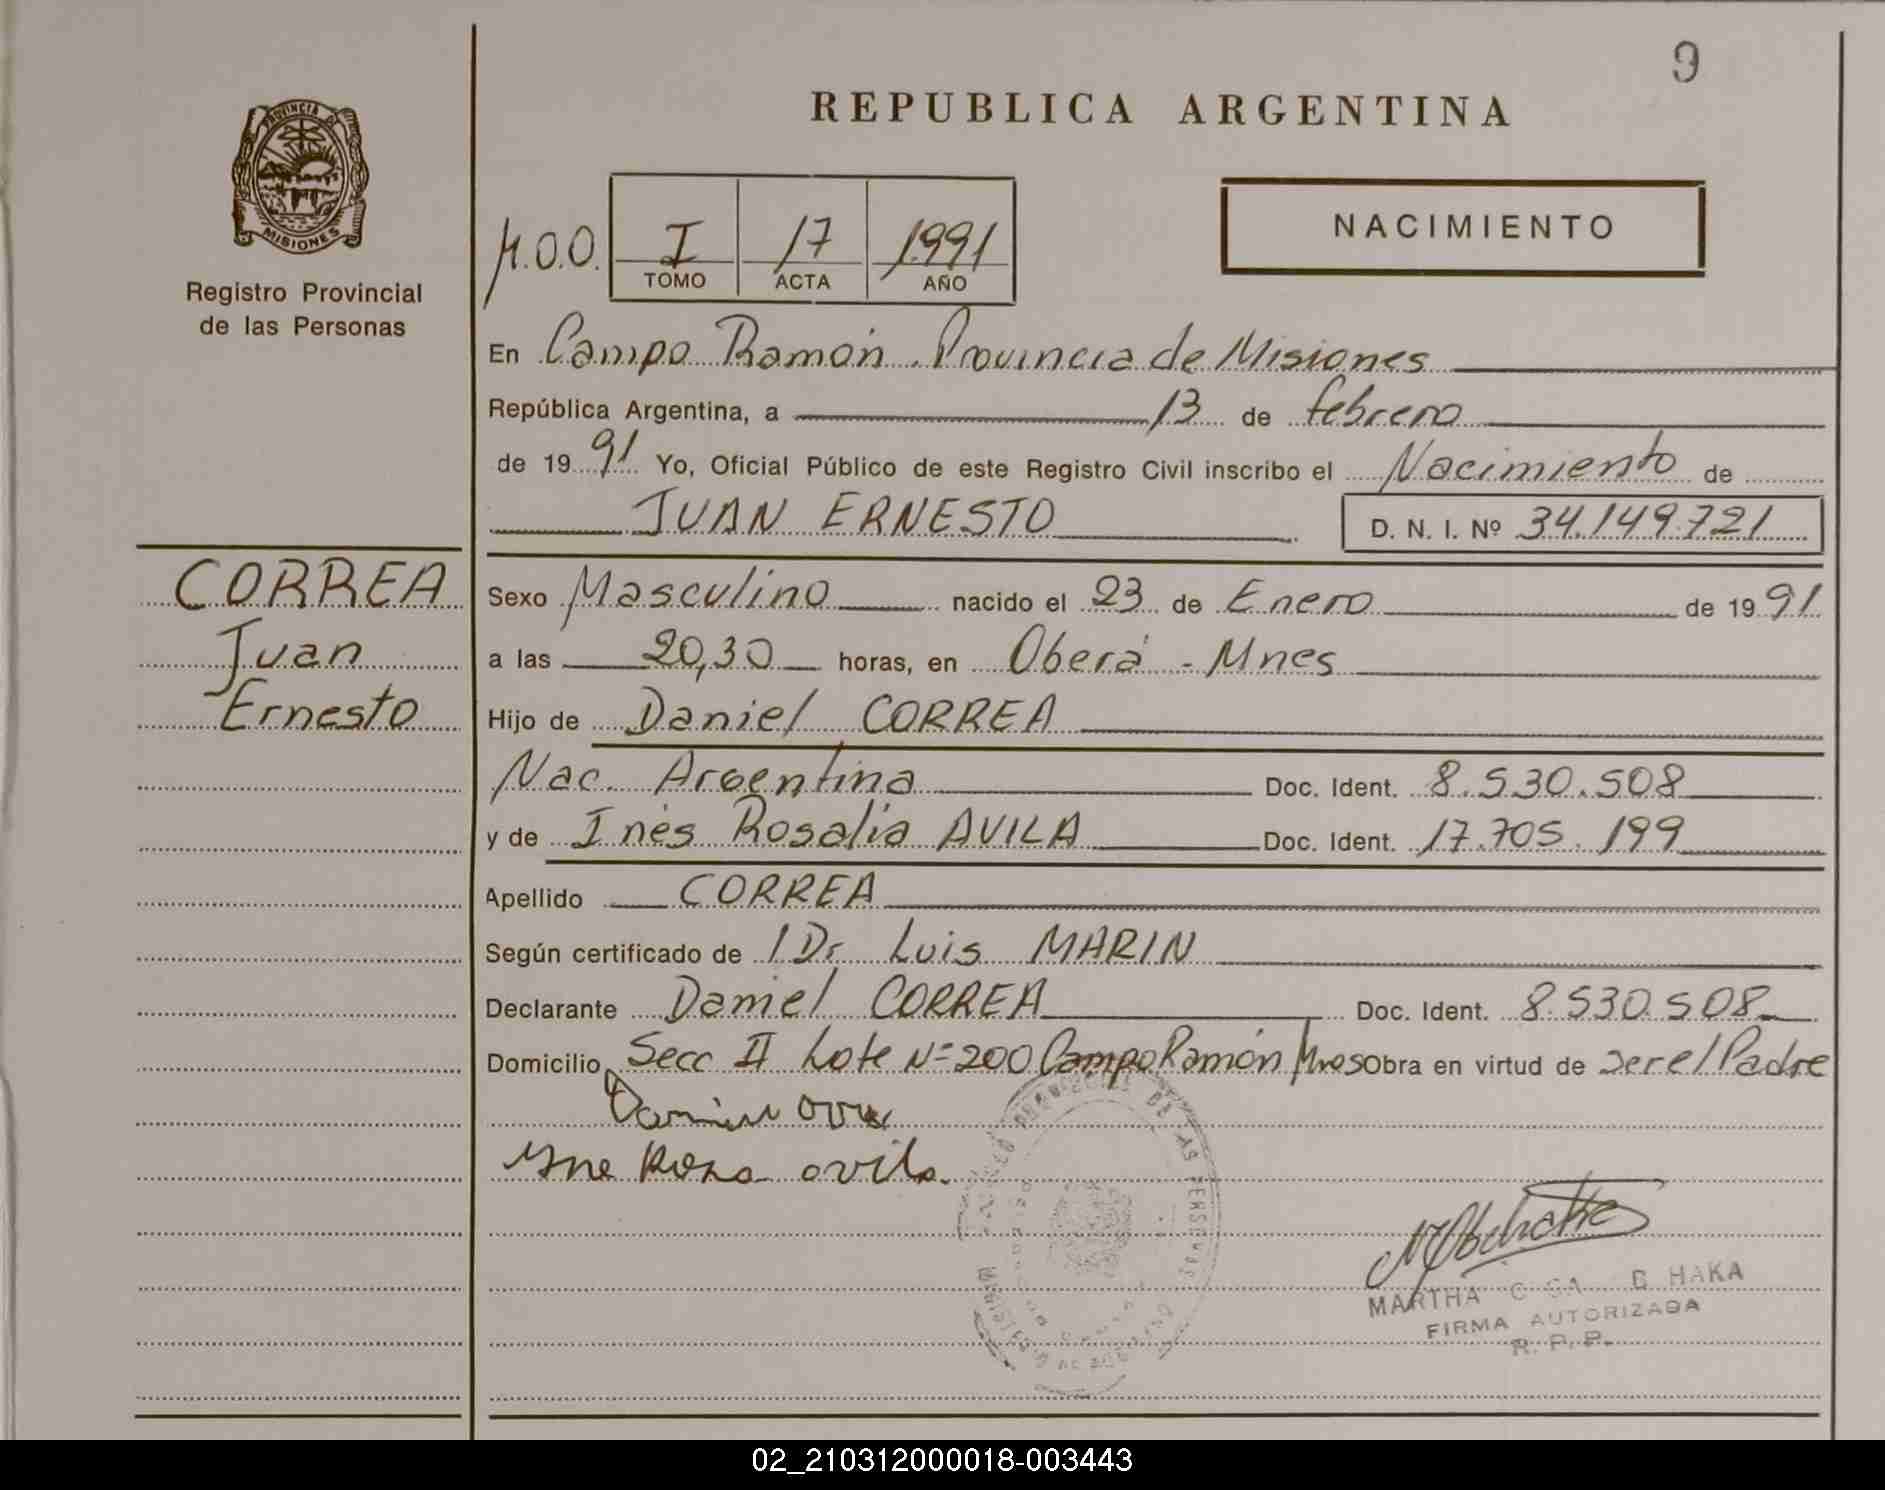 9
REPUBLICA ARGENTINA
PROVINCIA DE
MISIONES
Registro Provincial
de las Personas
M.O.O.
I 17 1991
TOMO ACTA AÑO
NACIMIENTO
En Campo Ramón. Provincia de Misiones
República Argentina, a 13 de febrero
de 1991 Yo, Oficial Público de este Registro Civil inscribo el Nacimiento de
JUAN ERNESTO D. N. I. Nº 34.149.721
CORREA
Juan
Ernesto
Sexo Masculino nacido el 23 de Enero de 1991
a las 20,30 horas, en Oberá - Mnes
Hijo de Daniel CORREA
Nac. Argentina Doc. Ident. 8.530.508
y de Inés Rosalia AVILA Doc. Ident. 17.705.199
Apellido CORREA
Según certificado de 1 Dr Luis MARIN
Declarante Daniel CORREA Doc. Ident. 8.530.508
Domicilio Secc II Lote Nº 200 Campo Ramón Mnes Obra en virtud de ser el Padre
DE LAS PERSONAS
MARTHA HAKA
FIRMA AUTORIZADA
R. P. P.
02_210312000018-003443